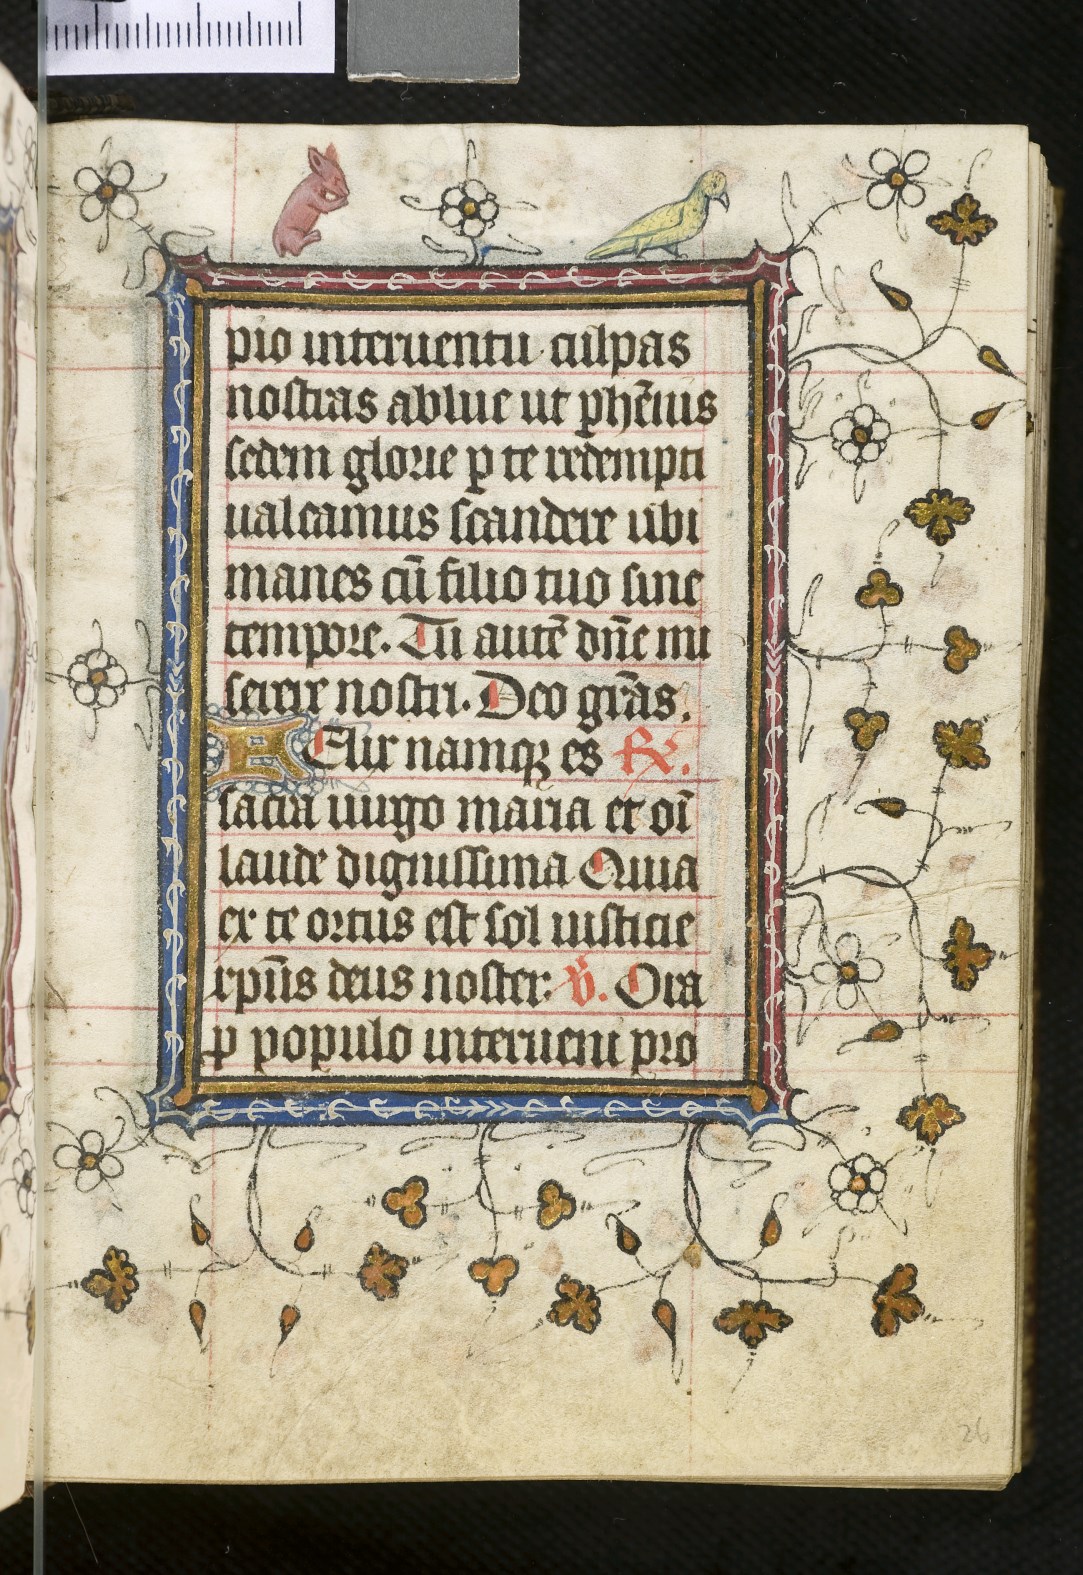 pio interuentu culpas
nostras ablue ut phēnis
sedem glorie p te redempti
ualeamus scandere ubi
manes cū filio tuo sine
tempore. Tu autē dn̄e mi
serere nostri. Deo gr̄as.
F Elix namqꝫ es R̷.
sacra uirgo maria et oī
laude dignissima Quia
ex te ortus est sol iusticie
xpūs deus noster: v̷. Ora
ꝓ populo interueni pro
26